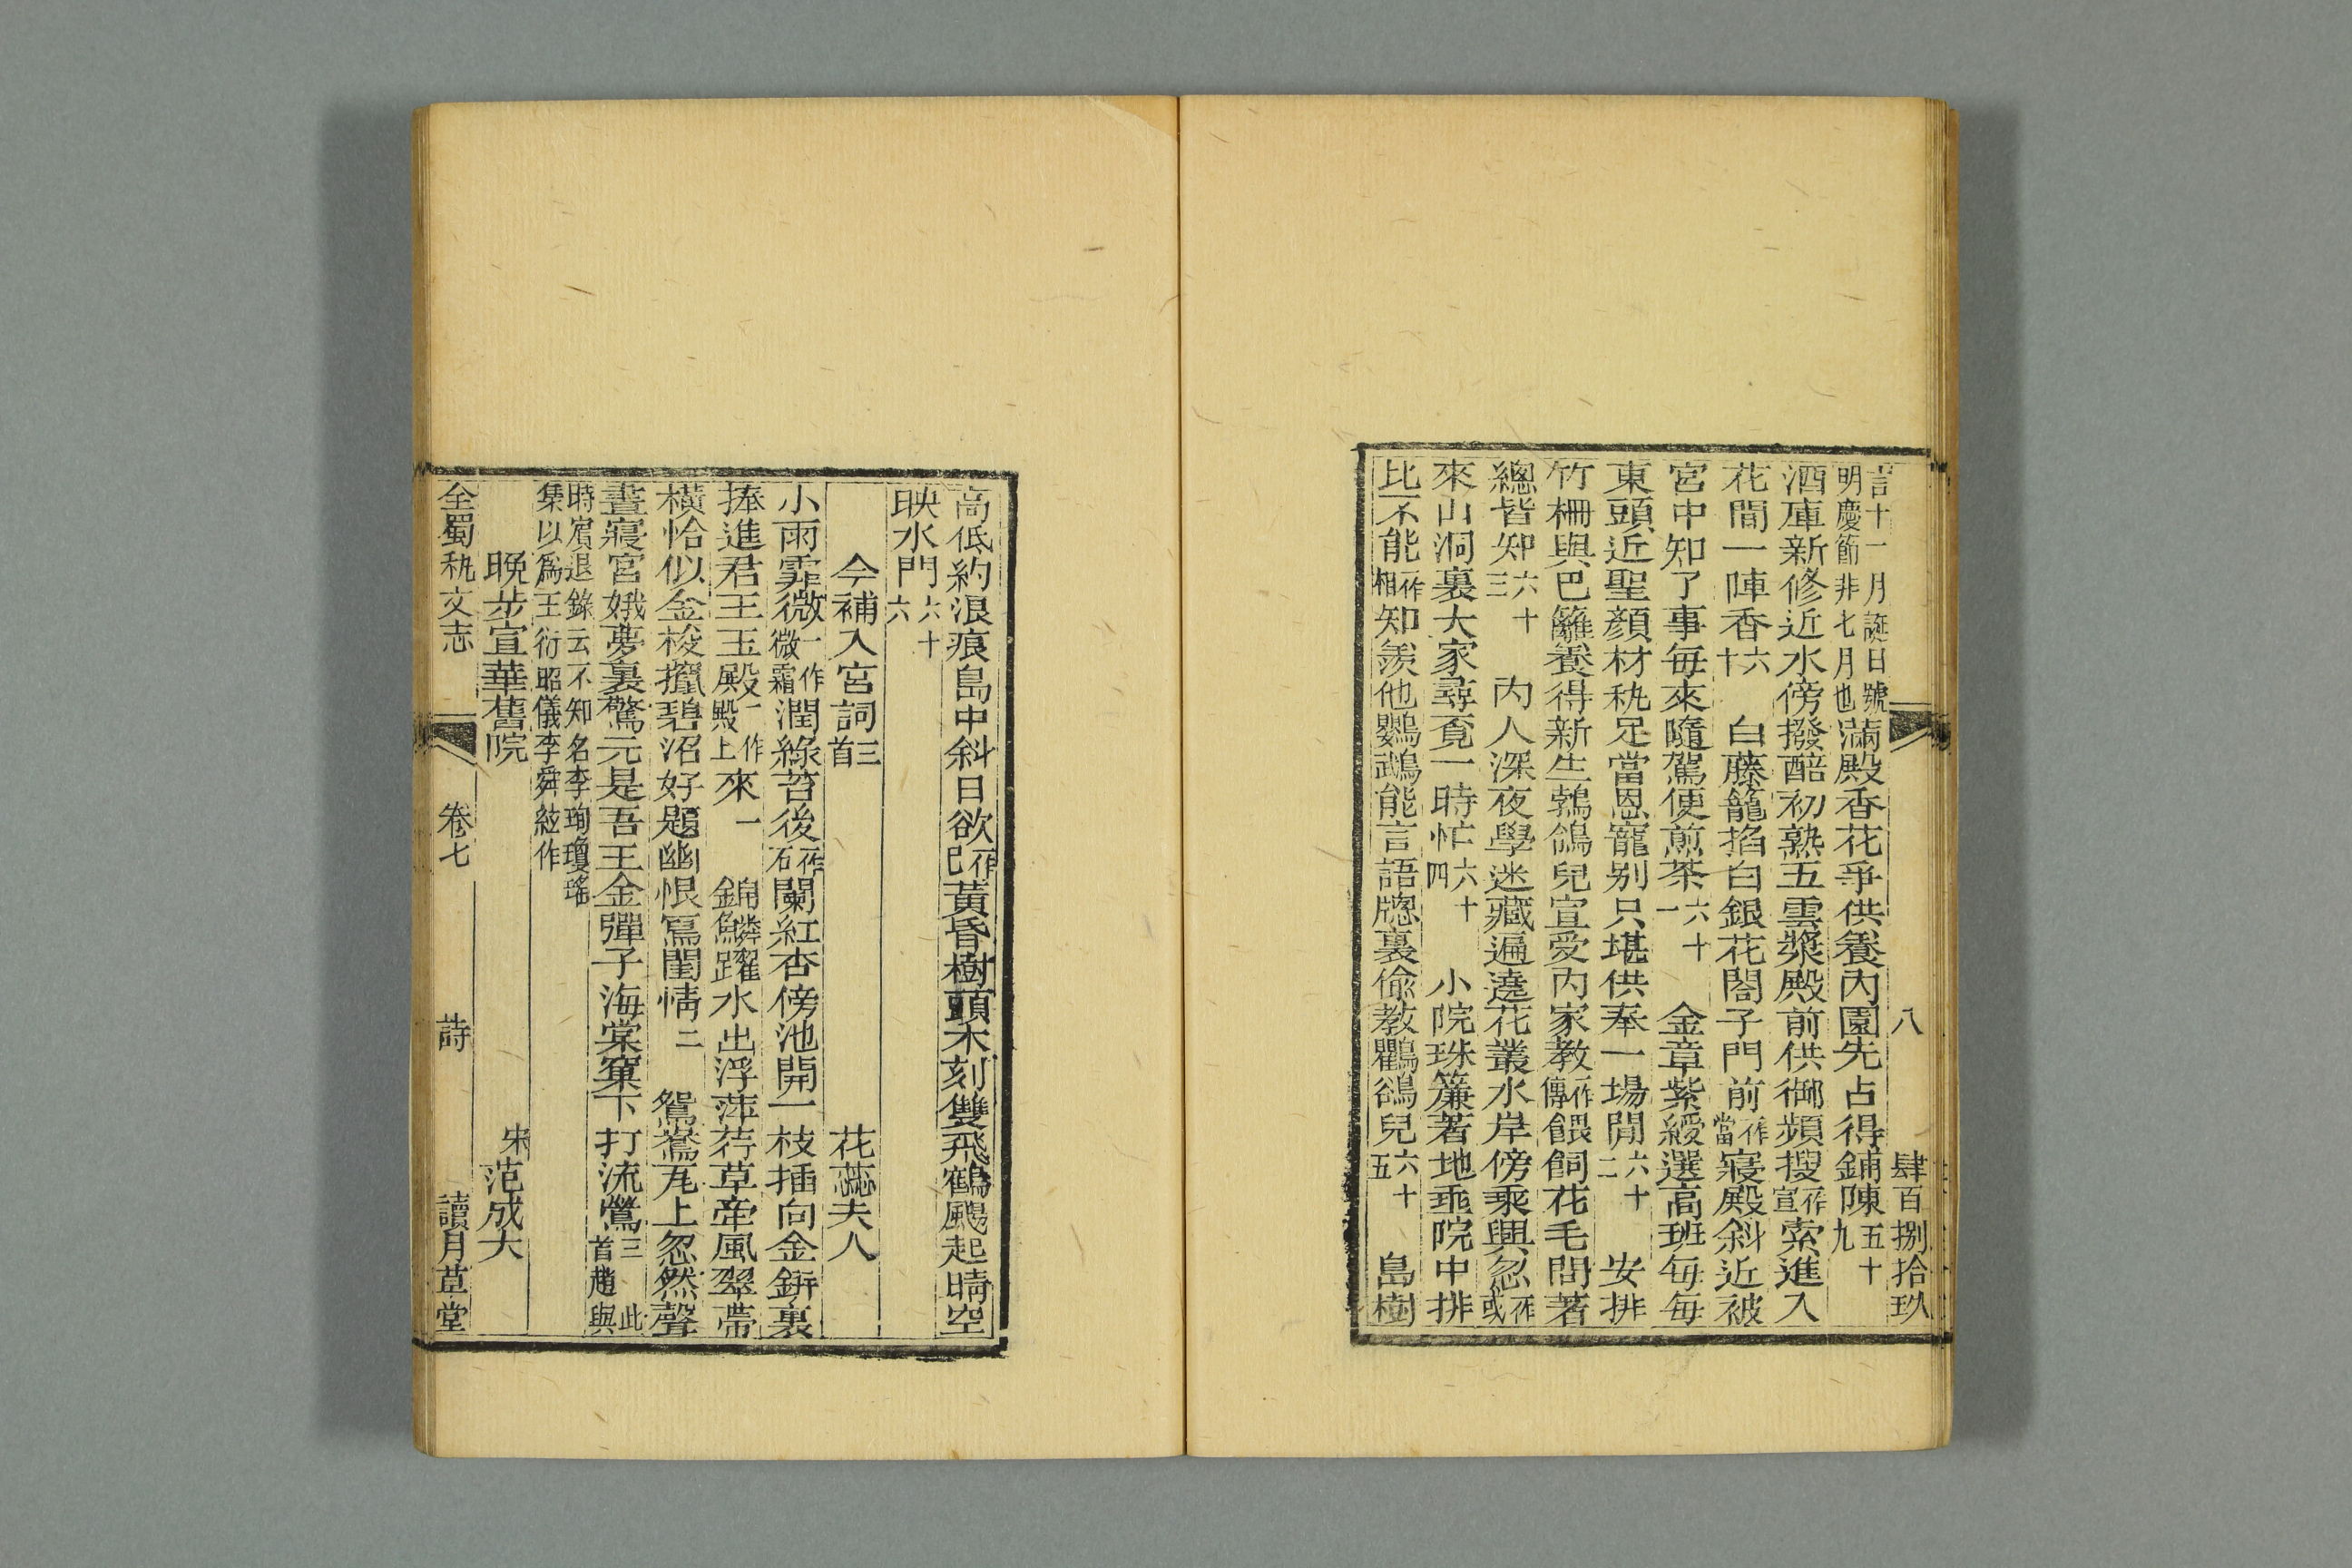 八 肆百捌拾玖
言十一月誕日號明慶節非七月也滿殿香花爭供養內園先占得鋪陳五十九
酒庫新修近水傍撥醅初熟五雲漿殿前供御頻搜一作宣索進入
花間一陣香六十 白藤籠掐白銀花閤子門前一作當寢殿斜近被
宮中知了事每來隨駕便煎茶六十一 金章紫綬選高班每每
東頭近聖顏材埶足當恩寵别只堪供奉一場閒六十二 安排
竹柵與巴籬養得新生鵓鴿兒宣愛內家教一作傳餵飼花毛問著
總皆知六十三 內人深夜學迷藏遍遶花叢水岸傍乘興忽一作或
來山洞裏大家尋覔一時忙六十四 小院珠簾著地垂院中排
比不能一作相知羨他鸚鵡能言語牕裏偸教鸜鵒兒六十五 島樹
高低約浪痕島中斜日欲一作巳黃昏樹頭木刻雙飛鶴颺起晴空
映水門六十六
今補入宮詞三首 花蕊夫人
小雨霏微一作微霜潤綠苔後一作石闌紅杏傍池開一枝插向金缾裏
捧進君王玉殿一作殿上來一 錦鱗躍水出浮萍荇草牽風翠帶
橫恰似金梭攛碧沼好題幽恨寫閨情二 鴛鴦瓦上忽然聲
晝寢宮娥夢裏驚元是吾王金彈子海棠窠下打流鶯三 此首趙與
時賔退錄云不知名李珣瓊瑤集以爲王衍昭儀李舜絃作
晚步宣華舊院 宋范成大
全蜀秇文志 卷七 詩 讀月草堂